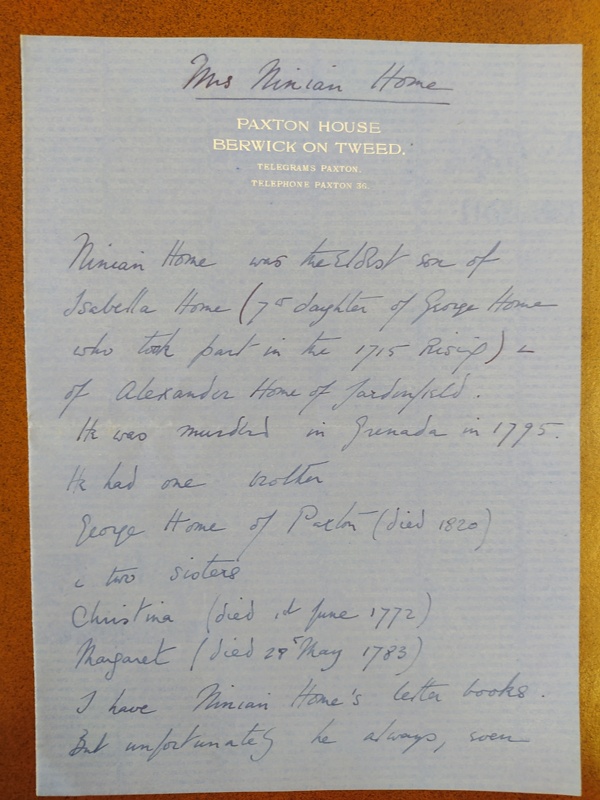 Mrs Ninian Home
PAXTON HOUSE
BERWICK ON TWEED.
TELEGRAMS PAXTON.
TELEPHONE PAXTON 36.
Ninian Home was the Eldest son of
Isabella Home (7th daughter of George Home
who took part in the 1715 Rising) &
of Alexander Home of Jardinfield.
He was murdered in Grenada in 1795.
He had one brother
George Home of Paxton (died 1820)
& two sisters
Christina (died 1st June 1772)
Margaret (died 28th May 1783)
I have Ninian Home's letter books.
But unfortunately he always, even